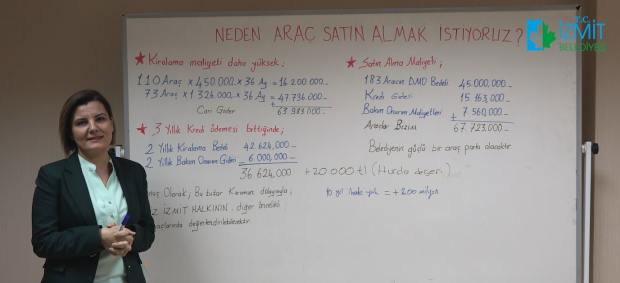 NEDEN ARAÇ SATIN ALMAK İSTİYORUZ?
T.C.
İZMİT
BELEDİYESİ
★ Kiralama maliyeti daha yüksek;
110 Araç × 450.000 × 36 Ay = 16.200.000
73 Araç × 1.326.000 × 36 Ay = 47.736.000
+
Cari Gider 63.983.000
★ 3 Yıllık Kredi ödemesi bittiğinde;
2 Yıllık Kiralama Bedeli 42.624.000
2 Yıllık Bakım Onarım Gideri 6.000.000
36.624.000 + 20.000 tl (Hurda değeri)
Olarak, Bu tutar Kurumun
İZMİT HALKININ diğer
değerlendirilebilecektir
★ Satın Alma Maliyeti;
183 Aracın DMO Bedeli 45.000.000
Kredi Gideri 15.163.000
Bakım Onarım Maliyetleri + 7.560.000
Araçlar Bizim 67.723.000
Belediyenin güçlü bir araç parkı olacaktır
10 yıl = +200 milyon